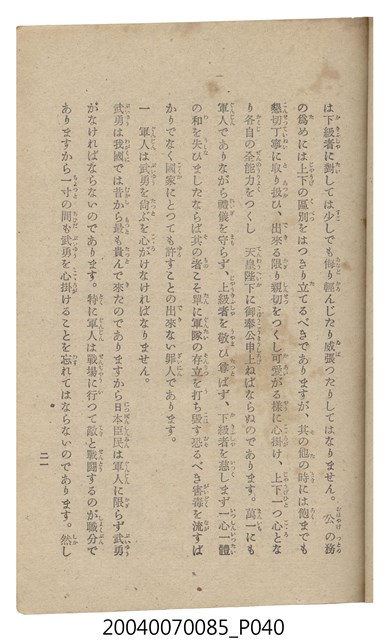 は下級者に對しては少しでも侮り輕んじたり威張つたりしてはなりません。公の務
の爲めには上下の區別をはつきり立てるべきでありますが、其の他の時には飽までも
懇切丁寧に取り扱ひ、出來る限り親切をつくし可愛がる樣に心掛け、上下一つ心とな
り各自の全能力をつくし 天皇陛下に御奉公申上ねばならぬのであります。萬一にも
軍人でありながら禮儀を守らず、上級者を敬ひ尊ばず、下級者を慈しまず一心一體
の和を失ひましたならば其の者こそ單に軍隊の存立を打ち毀す恐るべき害毒を流すば
かりでなく國家にとつても許すことの出來ない罪人であります。
一 軍人は武勇を尙ぶを心がけなければなりません。
武勇は我國では昔から最も貴んで來たのでありますから日本臣民は軍人に限らず武勇
がなければならないのであります。特に軍人は戰場に行つて敵と戰鬪するのが職分で
ありますから一寸の間も武勇を心掛けることを忘れてはならないのであります。然し
二一
20040070085_P040